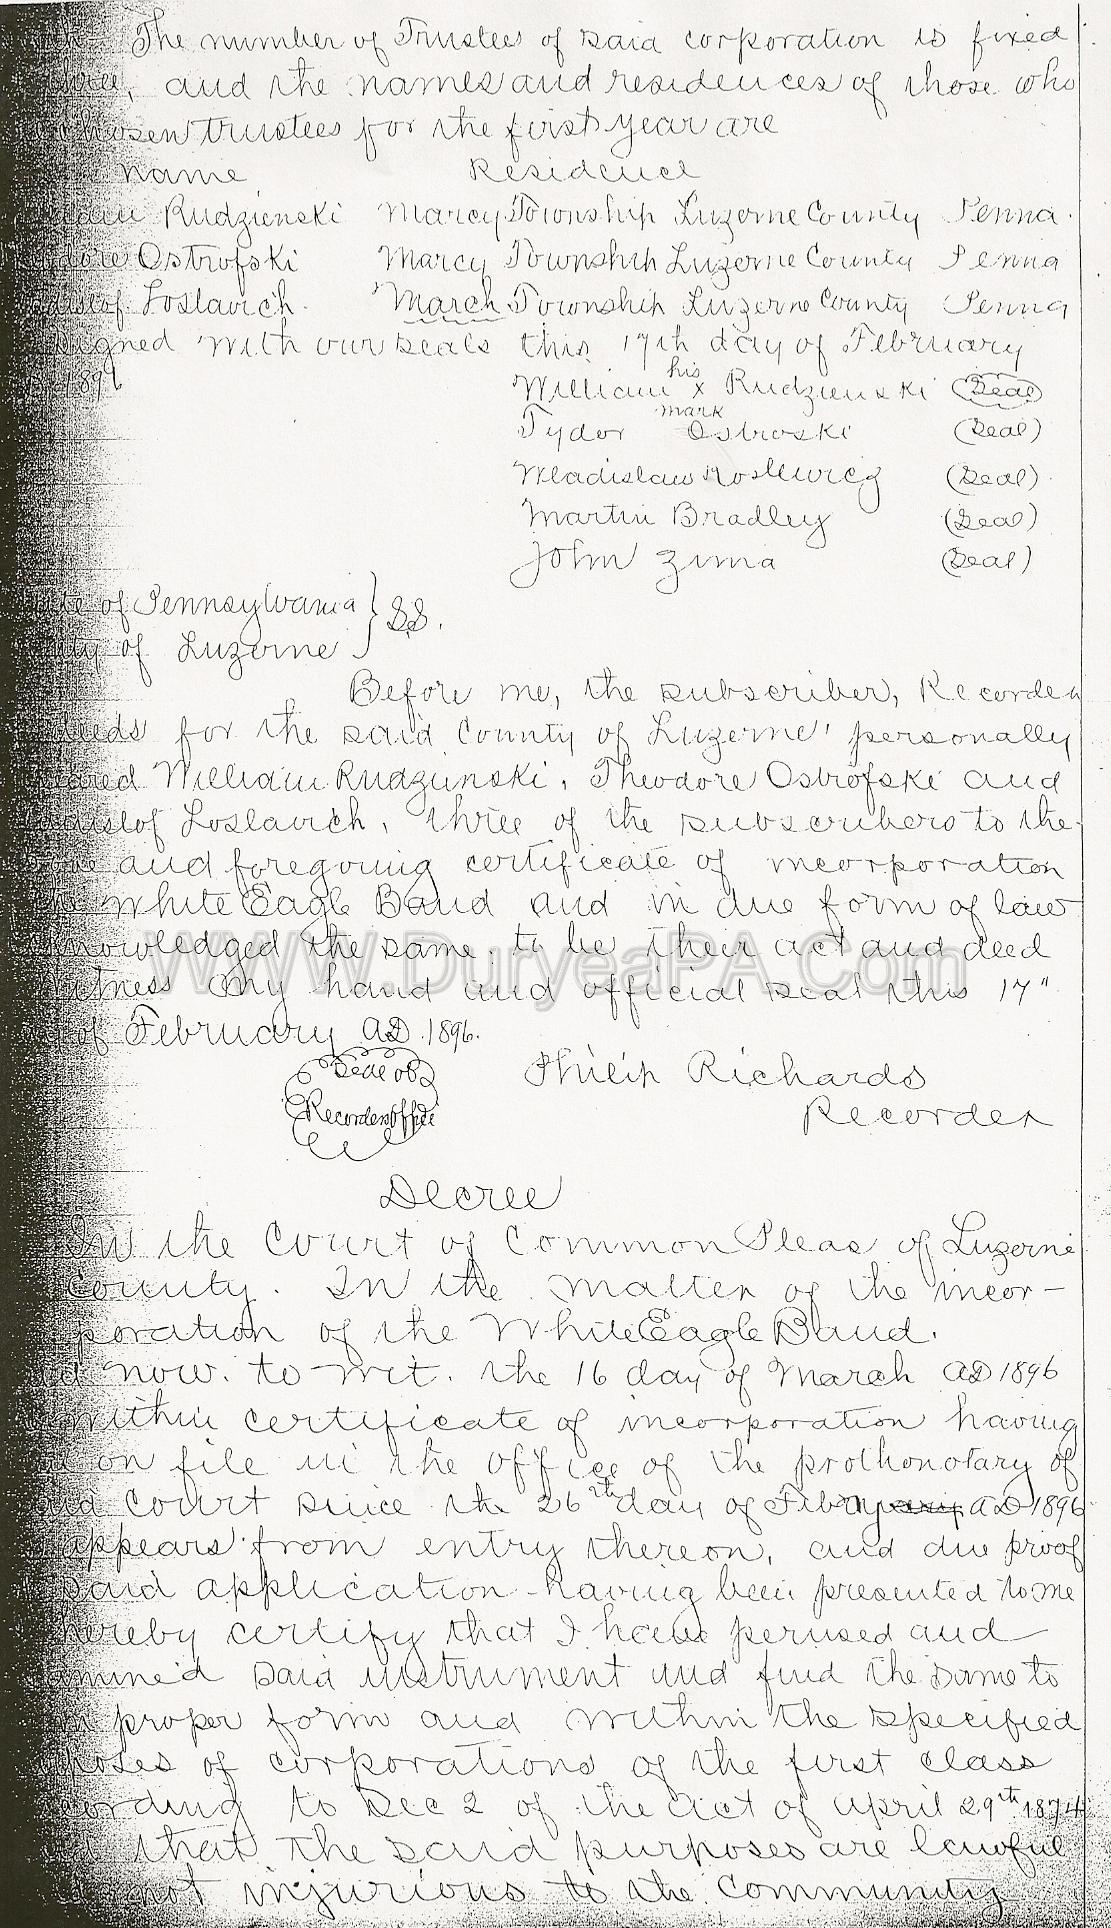 The number of Trustees of said corporation is fixed
three, and the names and residences of those who
chosen trustees for the first year are
name Residence
Rudzienski Marcy Township Luzerne County Penna.
Ostrofski Marcy Township Luzerne County Penna
Loslavich. March Township Luzerne County Penna
signed with our seals this 17th day of February
1896
William his x mark Rudzienski (Seal)
Tydor Ostroski (Seal)
Wladislaw (Seal)
Martin Bradley (Seal)
John Zima (Seal)
of Pennsylvania } SS.
of Luzerne
Before me, the subscriber, Recorder
deeds for the said County of Luzerne personally
William Rudzunski, Theodore Ostrofski and
Loslavich, three of the subscribers to the
and foregoing certificate of incorporation
White Eagle Band and in due form of law
the same to be their act and deed
WWW.DuryeaPA.Com
Witness my hand and official seal this 17"
of February AD. 1896.
Seal of
Recorders Office
Philip Richards
Recorder
Decree
In the Court of Common Pleas of Luzerne
County. In the matter of the incor-
poration of the White Eagle Band.
now. to wit. the 16 day of March AD 1896
within certificate of incorporation having
on file in the office of the prothonotary of
Court since the 26th day of Feb'ry AD 1896
appears from entry thereon, and due proof
said application having been presented to me
hereby certify that I have perused and
said instrument and find the same to
in proper form and within the specified
of corporations of the first class
to Sec 2 of the act of April 29th 1874
that the said purposes are lawful
not injurious to the community